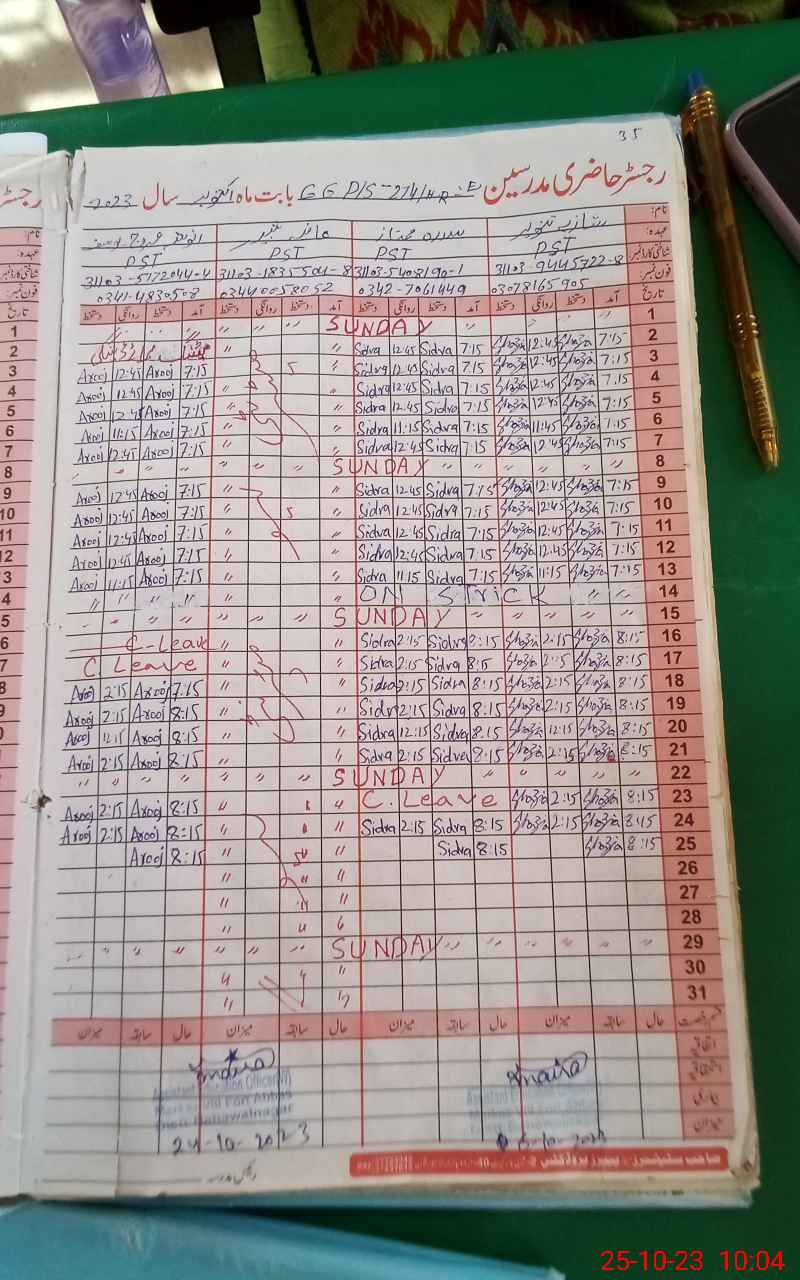 35
رجسٹر حاضری مدرسین GGP/S-274/HR:E بابت ماہ اکتوبر سال 2023
نام:
عہدہ: PST PST PST PST
شناختی کارڈ نمبر 31103-9445722-8 31103-5408190-1 31103-1835504-8 31103-5172044-4
فون نمبر: 03078165905 0342-7061449 03440058052 0341-4830508
تاریخ آمد دستخط روانگی دستخط آمد دستخط روانگی دستخط آمد دستخط روانگی دستخط آمد دستخط روانگی دستخط
1 SUNDAY
2 7:15 Shazia 12:45 Shazia 7:15 Sidra 12:45 Sidra
3 7:15 Shazia 12:45 Shazia 7:15 Sidra 12:45 Sidra 7:15 Arooj 12:45 Arooj
4 7:15 Shazia 12:45 Shazia 7:15 Sidra 12:45 Sidra 7:15 Arooj 12:45 Arooj
5 7:15 Shazia 12:45 Shazia 7:15 Sidra 12:45 Sidra 7:15 Arooj 12:45 Arooj
6 7:15 Shazia 11:45 Shazia 7:15 Sidra 11:15 Sidra 7:15 Arooj 11:15 Arooj
7 7:15 Shazia 12:45 Shazia 7:15 Sidra 12:45 Sidra 7:15 Arooj 12:45 Arooj
8 SUNDAY
9 7:15 Shazia 12:45 Shazia 7:15 Sidra 12:45 Sidra 7:15 Arooj 12:45 Arooj
10 7:15 Shazia 12:45 Shazia 7:15 Sidra 12:45 Sidra 7:15 Arooj 12:45 Arooj
11 7:15 Shazia 12:45 Shazia 7:15 Sidra 12:45 Sidra 7:15 Arooj 12:45 Arooj
12 7:15 Shazia 12:45 Shazia 7:15 Sidra 12:45 Sidra 7:15 Arooj 12:45 Arooj
13 7:15 Shazia 11:15 Shazia 7:15 Sidra 11:15 Sidra 7:15 Arooj 11:15 Arooj
14 ON STRICK
15 SUNDAY
16 8:15 Shazia 2:15 Shazia 8:15 Sidra 2:15 Sidra C-Leave
17 8:15 Shazia 2:15 Shazia 8:15 Sidra 2:15 Sidra C. Leave
18 8:15 Shazia 2:15 Shazia 8:15 Sidra 2:15 Sidra 7:15 Arooj 2:15 Arooj
19 8:15 Shazia 2:15 Shazia 8:15 Sidra 2:15 Sidra 8:15 Arooj 2:15 Arooj
20 8:15 Shazia 12:15 Shazia 8:15 Sidra 12:15 Sidra 8:15 Arooj 12:15 Arooj
21 8:15 Shazia 2:15 Shazia 8:15 Sidra 2:15 Sidra 8:15 Arooj 2:15 Arooj
22 SUNDAY
23 8:15 Shazia 2:15 Shazia C. Leave 8:15 Arooj 2:15 Arooj
24 8:15 Shazia 2:15 Shazia 8:15 Sidra 2:15 Sidra 8:15 Arooj 2:15 Arooj
25 8:15 Shazia 8:15 Sidra 8:15 Arooj
26
27
28
29 SUNDAY
30
31
حال سابقہ میزان حال سابقہ میزان حال سابقہ میزان حال سابقہ میزان
میزان
24-10-2023
25-10-23 10:04